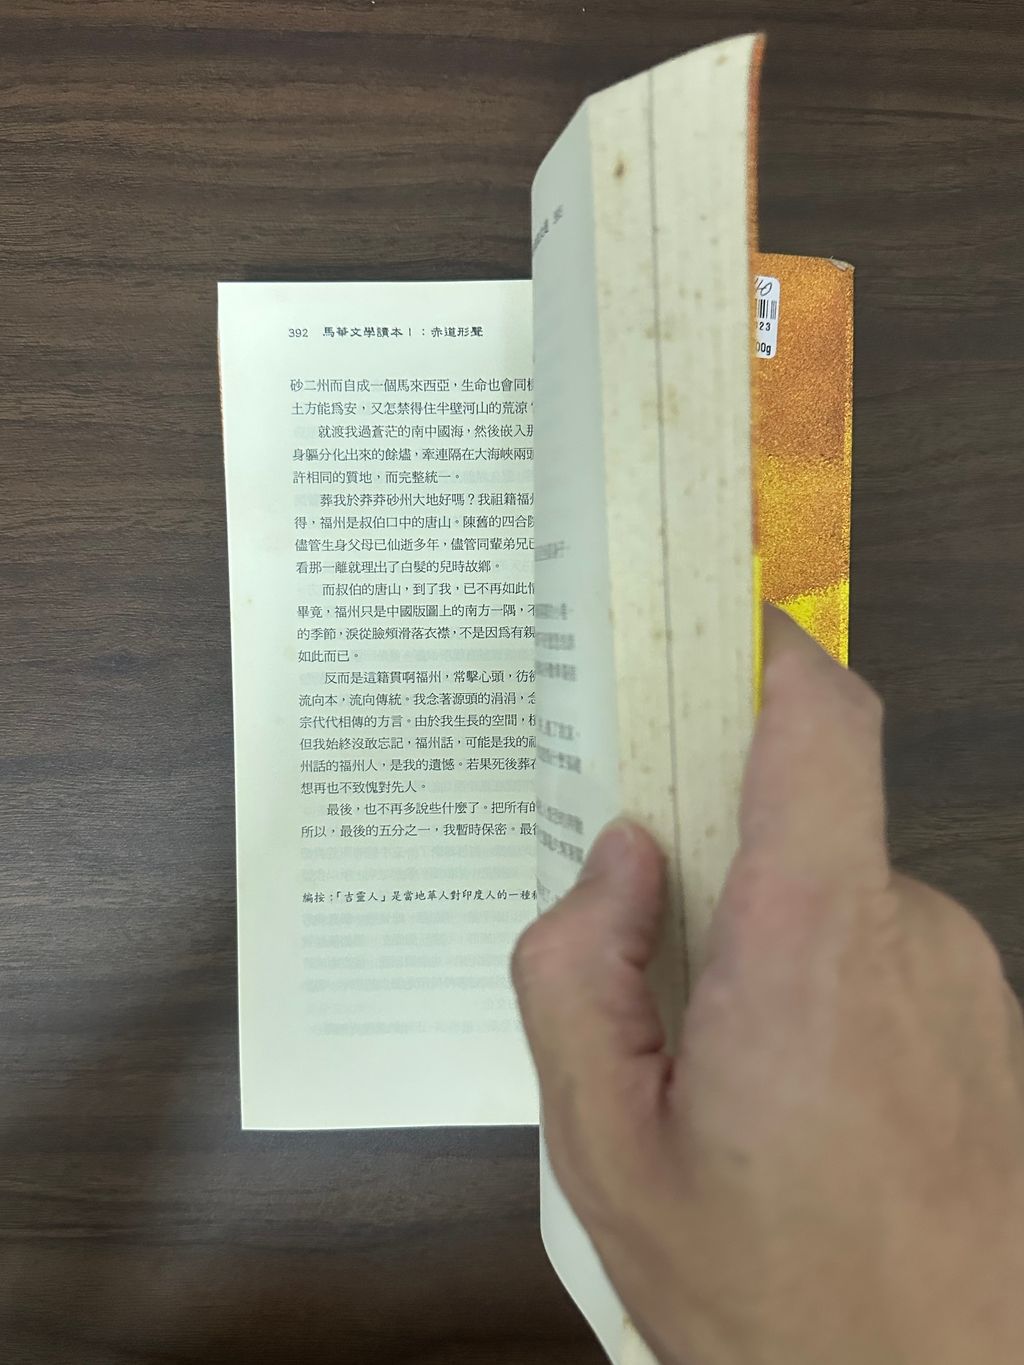 392 馬華文學讀本Ⅰ：赤道形聲
砂二州而自成一個馬來西亞，生命也會同
土方能爲安，又怎禁得住半壁河山的荒涼？
就渡我過蒼茫的南中國海，然後嵌入那
身軀分化出來的餘燼，牽連隔在大海峽兩頭
許相同的質地，而完整統一。
葬我於莽莽砂州大地好嗎？我祖籍福州
得，福州是叔伯口中的唐山。陳舊的四合院
儘管生身父母已仙逝多年，儘管同輩弟兄已
看那一離就理出了白髮的兒時故鄉。
而叔伯的唐山，到了我，已不再如此情
畢竟，福州只是中國版圖上的南方一隅，不
的季節，淚從臉頰滑落衣襟，不是因爲有親
如此而已。
反而是這籍貫啊福州，常擊心頭，彷彿
流向本，流向傳統。我念著源頭的涓涓，念
宗代代相傳的方言。由於我生長的空間，
但我始終沒敢忘記，福州話，可能是我的祖
州話的福州人，是我的遺憾。若果死後葬在
想再也不致愧對先人。
最後，也不再多說些什麼了。把所有的
所以，最後的五分之一，我暫時保密。最後
編按：「吉靈人」是當地華人對印度人的一種稱
40
23
00g